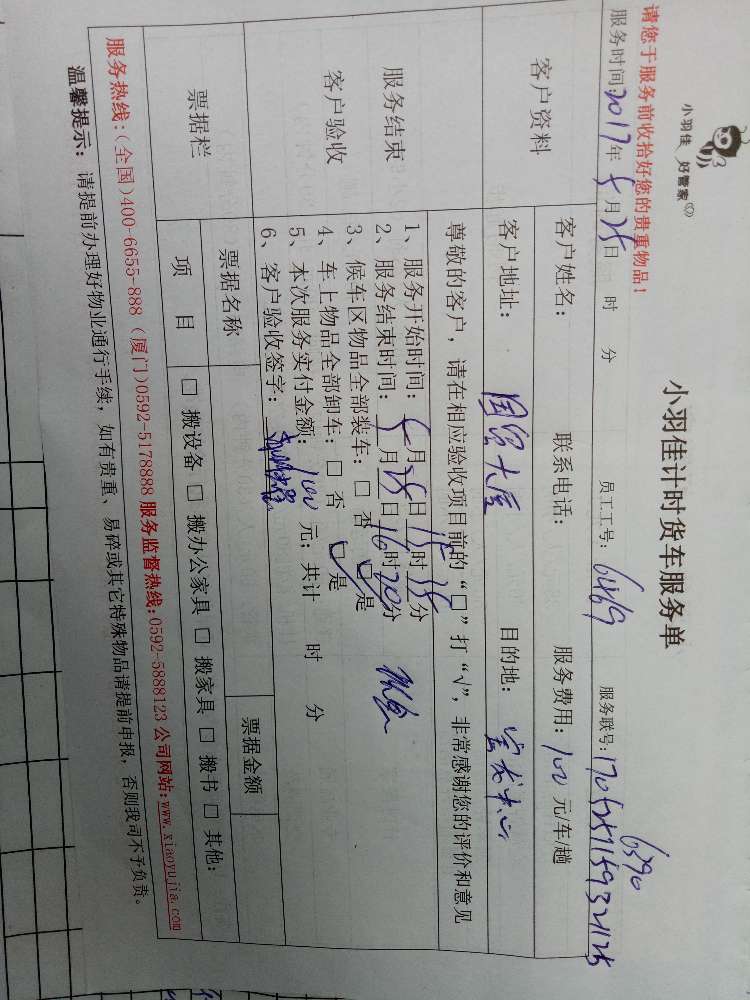 小羽佳 好管家
小羽佳计时货车服务单
请您于服务前收拾好您的贵重物品!
服务时间:2017年5月25日 时 分 员工工号: 6469 服务联号:
6390
客户资料
客户姓名: 联系电话: 服务费用: 100 元/车/趟
客户地址: 国贸大厦 目的地:
服务结束
客户验收
尊敬的客户, 请在相应验收项目前的“□”打“√”, 非常感谢您的评价和意见
1、服务开始时间: 5月25日15时25分
2、服务结束时间: 5月25日16时20分
3、候车区物品全部装车: □ 否 □ 是
4、车上物品全部卸车: □ 否 □ 是
5、本次服务实付金额: 100 元; 共计 时 分
6、客户验收签字:
现金
票据栏
票据名称 票据金额
项 目 □ 搬设备 □ 搬办公家具 □ 搬家具 □ 搬书 □ 其他:
服务热线:(全国)400-6655-888 (厦门)0592-5178888 服务监督热线:0592-5888123 公司网站:www.xiaoyujia.com
温馨提示: 请提前办理好物业通行手续, 如有贵重、易碎或其它特殊物品请提前申报, 否则我司不予负责。